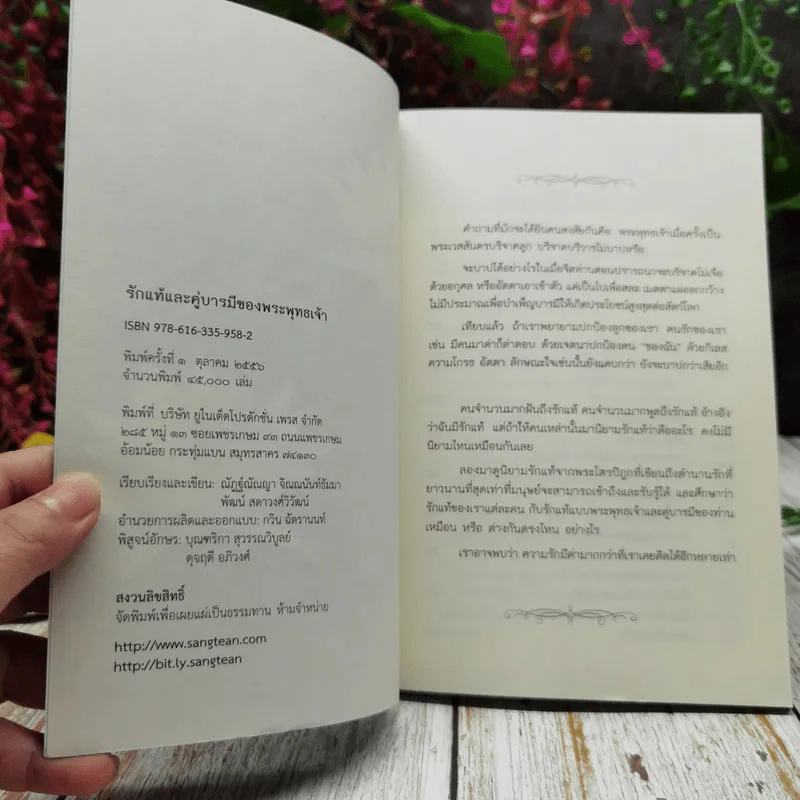 รักแท้และคู่บารมีของพระพุทธเจ้า
ISBN 978-616-335-958-2
พิมพ์ครั้งที่ ๑ ตุลาคม ๒๕๕๖
จำนวนพิมพ์ ๔๕,๐๐๐ เล่ม
พิมพ์ที่ บริษัท ยูไนเต็ดโปรดักชั่น เพรส จำกัด
๒๘๕ หมู่ ๑๓ ซอยเพชรเกษม ๙๓ ถนนเพชรเกษม
อ้อมน้อย กระทุ่มแบน สมุทรสาคร ๗๔๑๓๐
เรียบเรียงและเขียน: ณัฏฐ์ณัณญา จิณณนันท์ธัมมา
พัฒน์ สดาวงศ์วิวัฒน์
อำนวยการผลิตและออกแบบ: กวิน ฉัตรานนท์
พิสูจน์อักษร: บุณฑริกา สุวรรณวิบูลย์
ดุจฤดี อภิวงศ์
สงวนลิขสิทธิ์
จัดพิมพ์เพื่อเผยแผ่เป็นธรรมทาน ห้ามจำหน่าย
http://www.sangtean.com
http://bit.ly.sangtean
คำถามที่มักจะได้ยินคนสงสัยกันคือ พระพุทธเจ้าเมื่อครั้งเป็น
พระเวสสันดรบริจาคลูก บริจาคบริวารไม่บาปหรือ
จะบาปได้อย่างไรในเมื่อจิตท่านตอนปรารถนาจะบริจาคไม่เจือ
ด้วยอกุศล หรืออัตตาเอาเข้าตัว แต่เป็นไปเพื่อสละ เมตตาแผ่ออกกว้าง
ไม่มีประมาณเพื่อบำเพ็ญบารมีให้เกิดประโยชน์สูงสุดต่อสัตว์โลก
เทียบแล้ว ถ้าเราพยายามปกป้องลูกของเรา คนรักของเรา
เช่น มีคนมาด่าก็ด่าตอบ ด้วยเจตนาปกป้องคน "ของฉัน" ด้วยกิเลส
ความโกรธ อัตตา ลักษณะใจเช่นนั้นยังแคบกว่า ยังจะบาปกว่าเสียอีก
คนจำนวนมากฝันถึงรักแท้ คนจำนวนมากพูดถึงรักแท้ อ้างอิง
ว่าฉันมีรักแท้ แต่ถ้าให้คนเหล่านั้นมานิยามรักแท้ว่าคืออะไร คงไม่มี
นิยามไหนเหมือนกันเลย
ลองมาดูนิยามรักแท้จากพระไตรปิฎกที่เขียนถึงตำนานรักที่
ยาวนานที่สุดเท่าที่มนุษย์จะสามารถเข้าถึงและรับรู้ได้ และศึกษาว่า
รักแท้ของเราแต่ละคน กับรักแท้แบบพระพุทธเจ้าและคู่บารมีของท่าน
เหมือน หรือ ต่างกันตรงไหน อย่างไร
เราอาจพบว่า ความรักมีค่ามากกว่าที่เราเคยคิดได้อีกหลายเท่า